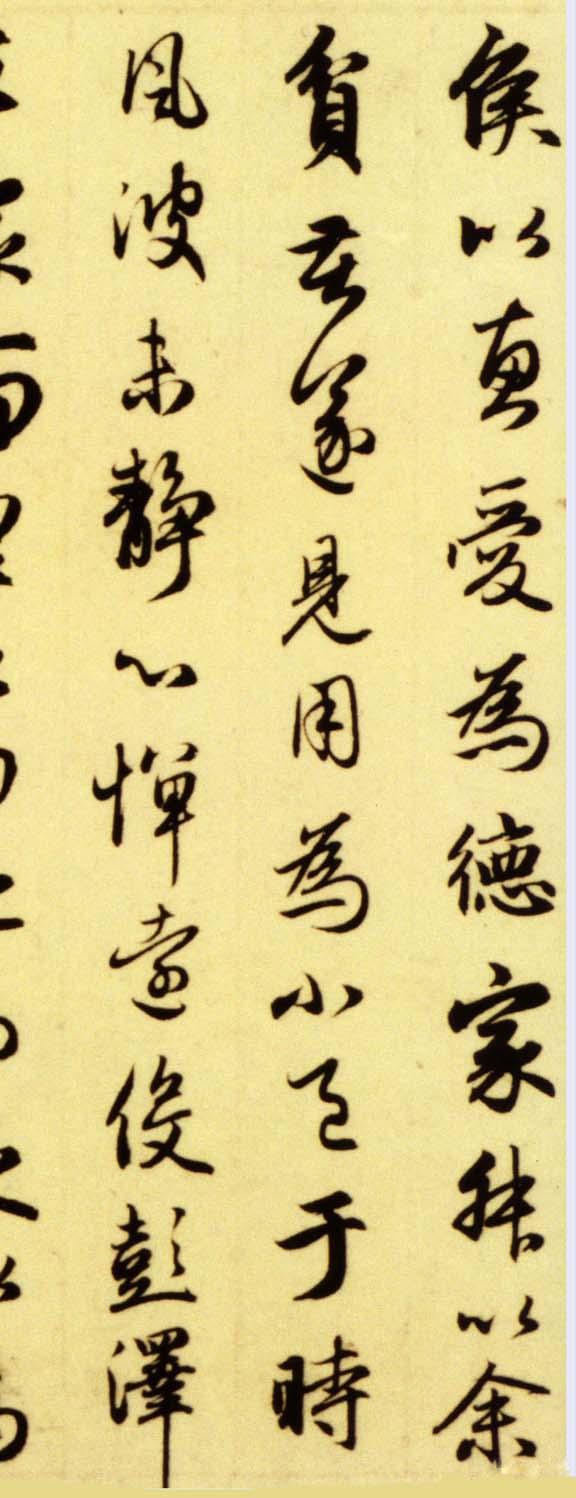 侯以惠愛為德家叔以余
貧苦遂見用為小邑于時
風波未靜心憚遠役彭澤